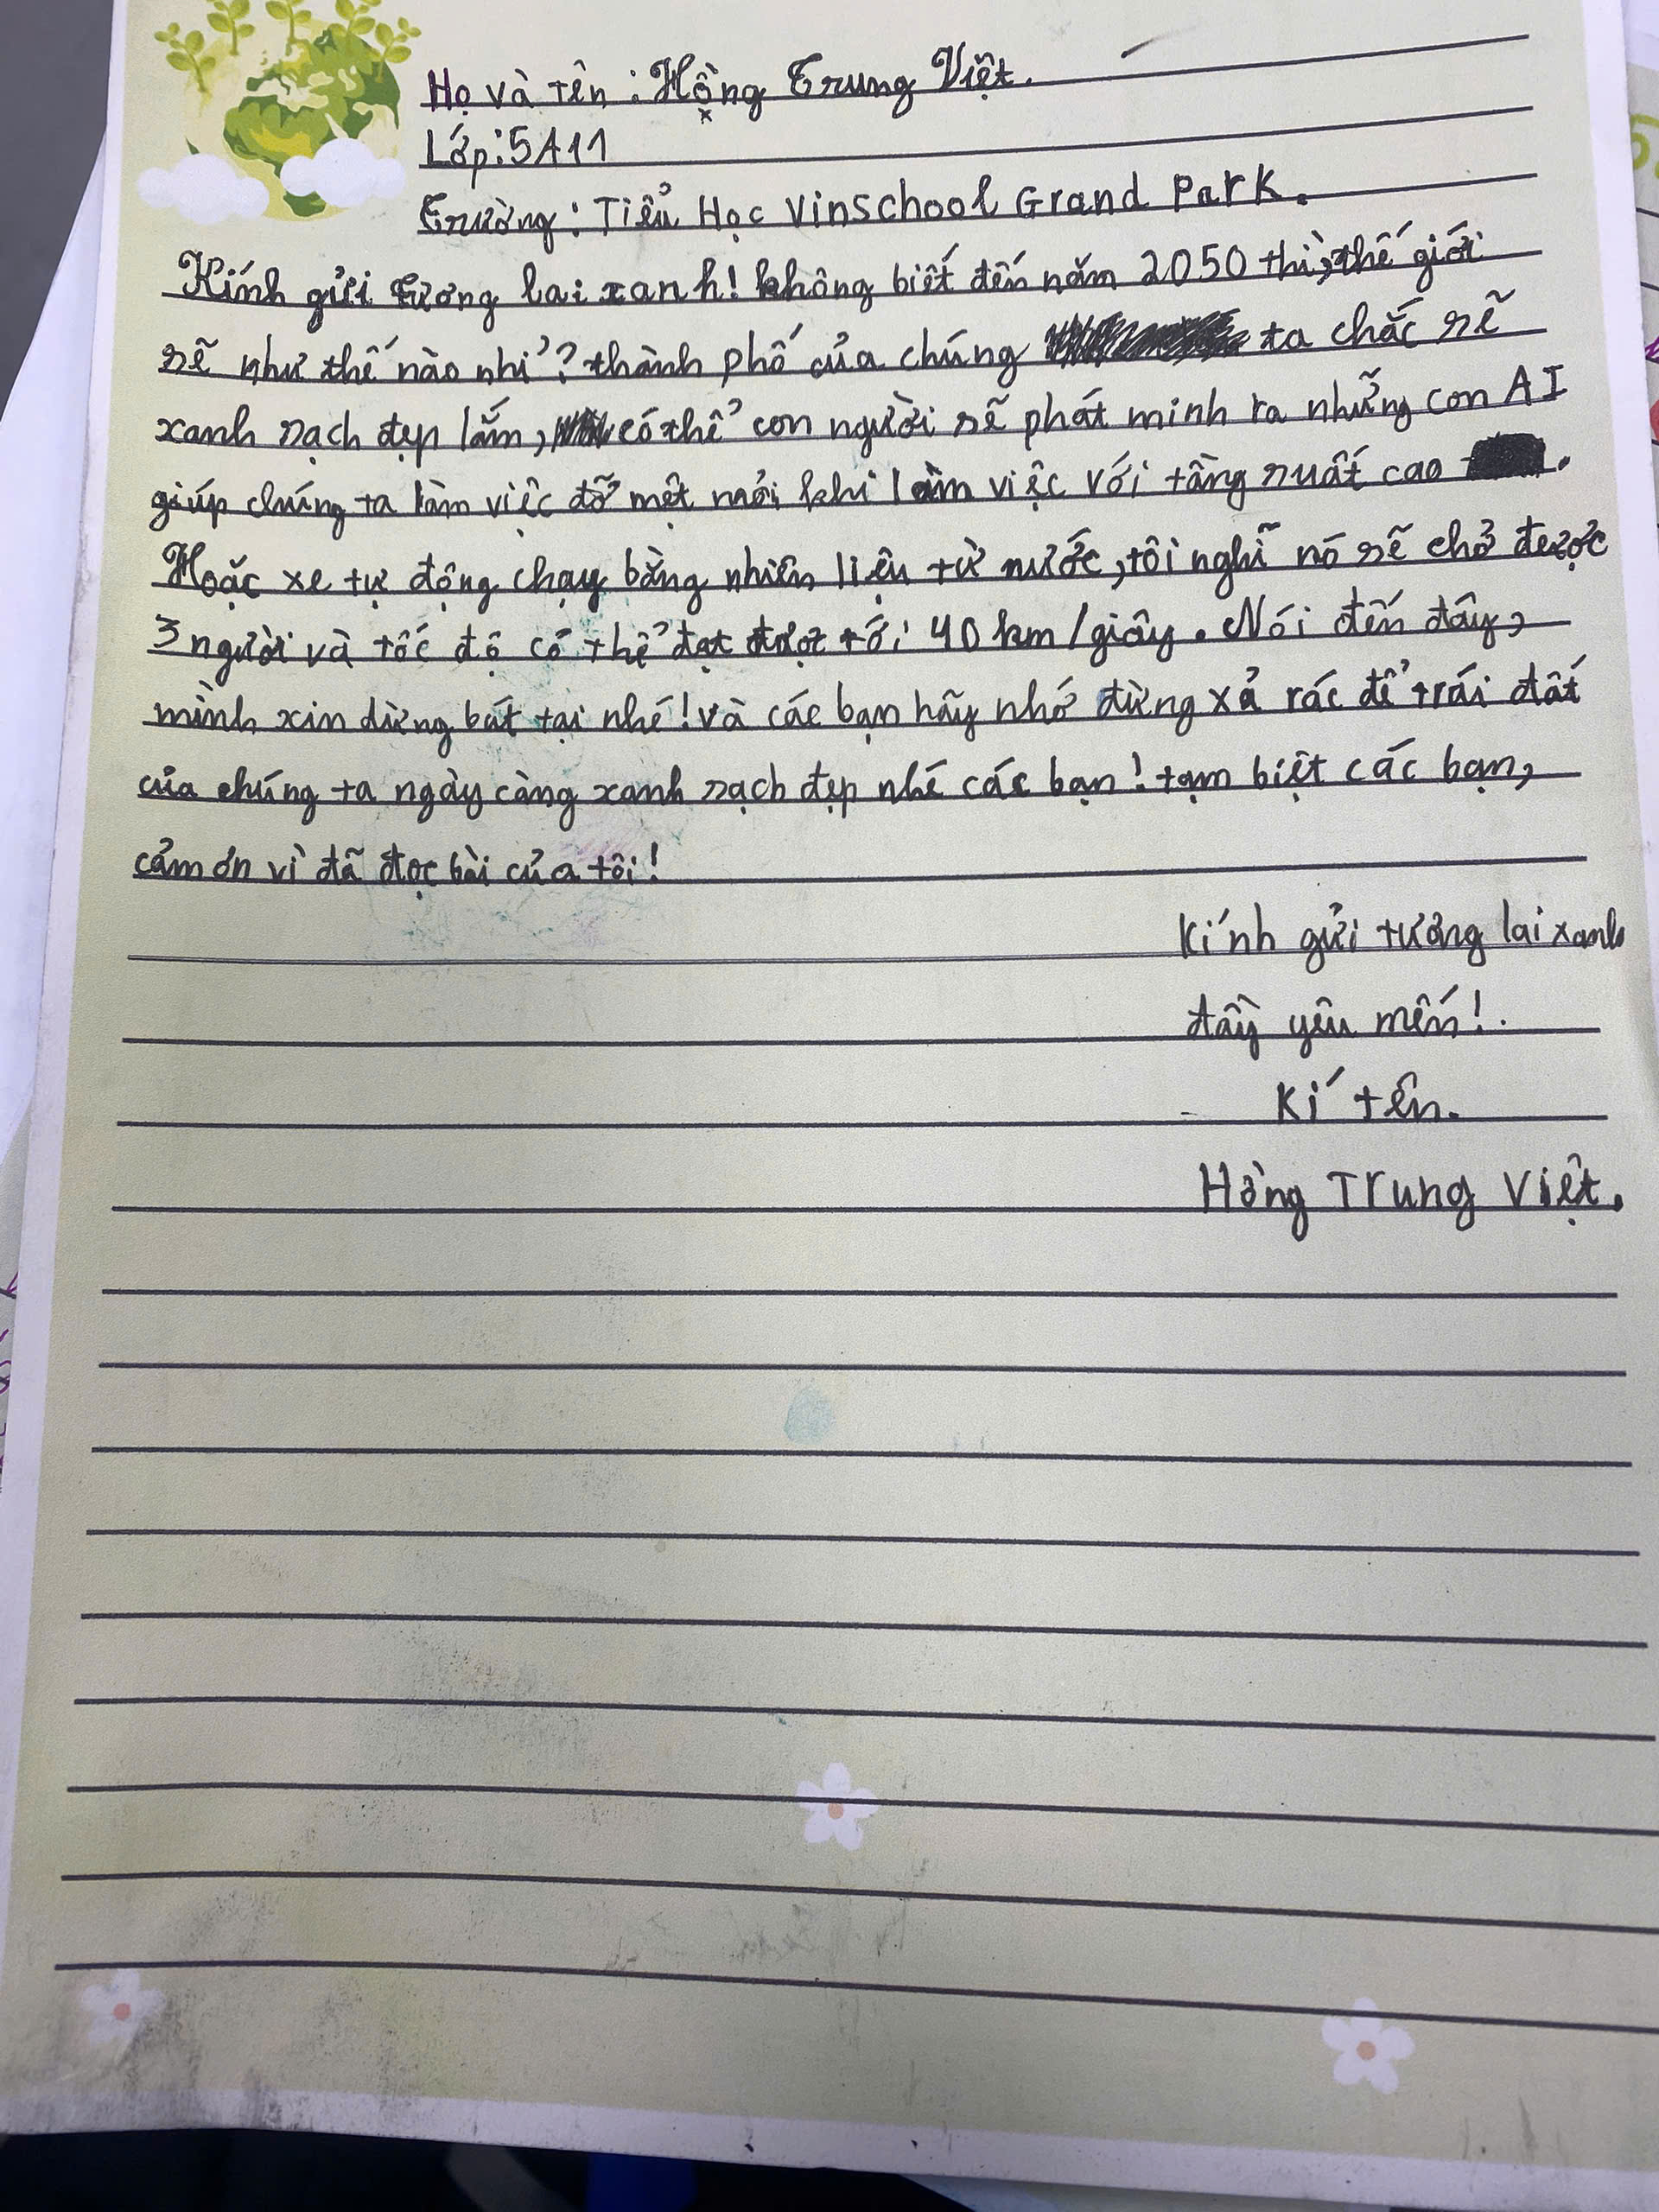 Họ và tên : Hồng Trung Việt.
Lớp: 5A11
Trường: Tiểu Học Vinschool Grand Park.
Kính gửi tương lai xanh! không biết đến năm 2050 thì, thế giới
sẽ như thế nào nhỉ? thành phố của chúng ta chắc sẽ
xanh sạch đẹp lắm, có thể con người sẽ phát minh ra những con AI
giúp chúng ta làm việc đỡ mệt mỏi khi làm việc với tầng suất cao .
Hoặc xe tự động chạy bằng nhiên liệu từ nước, tôi nghĩ nó sẽ chở được
3 người và tốc độ có thể đạt được tới 40 km/giây. Nói đến đây,
mình xin dừng bút tại nhé! và các bạn hãy nhớ đừng xả rác để trái đất
của chúng ta ngày càng xanh sạch đẹp nhé các bạn! tạm biệt các bạn,
cảm ơn vì đã đọc bài của tôi!
Kính gửi tương lai xanh
đầy yêu mến!.
Kí tên.
Hồng Trung Việt.